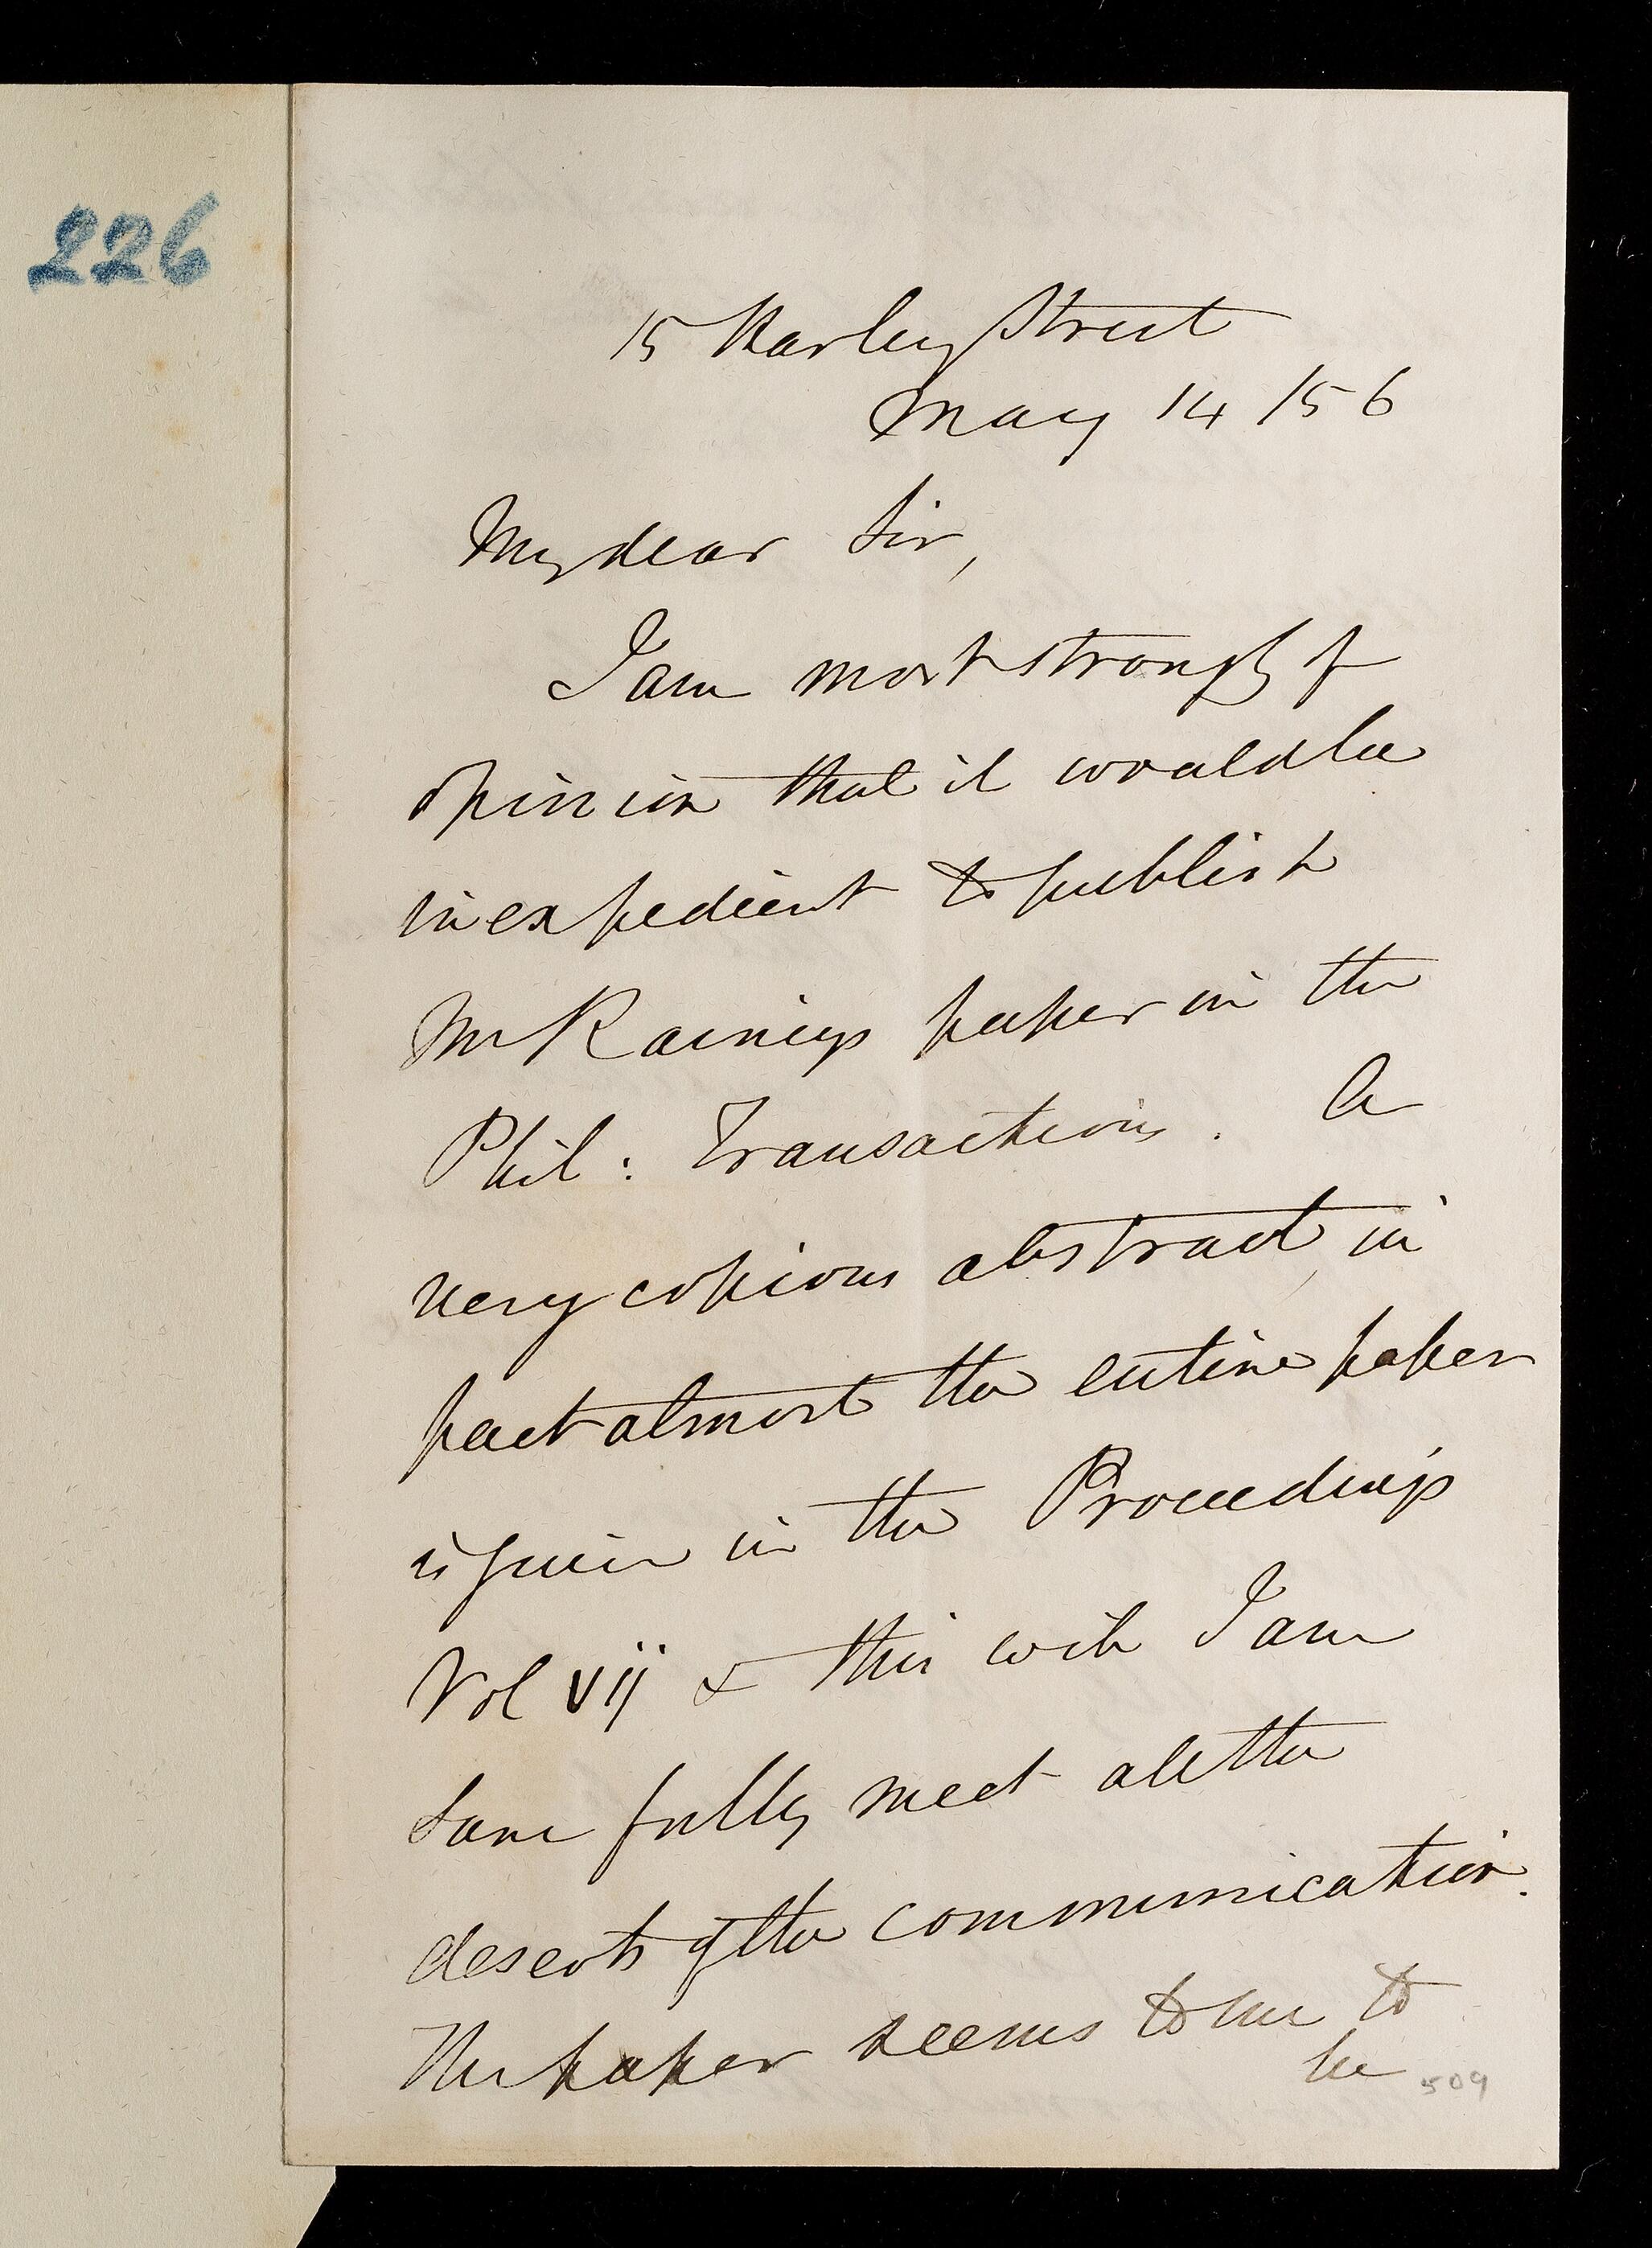 226
15 Harley Street
May 14 /56
My dear Sir,
I am most strongly of
opinion that it would be
inexpedient to publish
Mr Raineys paper in the
Phil: Transactions. A
very copious abstract, in
fact almost the entire paper
is given in the Proceedings
Vol vij & this will I am
sure fully meet all the
deserts of the communication.
The paper seems to me to
be
509